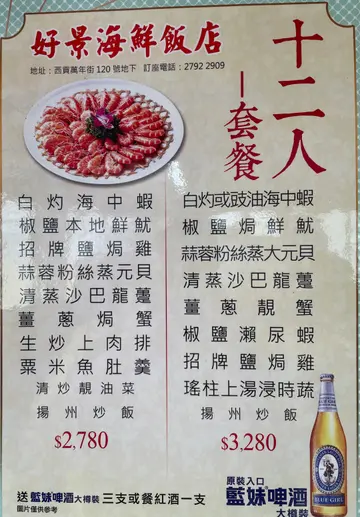 好景海鮮飯店
地址：西貢萬年街120號地下 訂座電話：2792 2909
十二人
一套餐
白灼海中蝦
椒鹽本地鮮魷
招牌鹽焗雞
蒜蓉粉絲蒸元貝
清蒸沙巴龍躉
薑蔥焗蟹
生炒上肉排
粟米魚肚羹
清炒靚油菜
揚州炒飯
$2,780
白灼或豉油海中蝦
椒鹽焗鮮魷
蒜蓉粉絲蒸大元貝
清蒸沙巴龍躉
薑蔥靚蟹
椒鹽瀨尿蝦
招牌鹽焗雞
瑤柱上湯浸時蔬
揚州炒飯
$3,280
送藍妹啤酒大樽裝三支或餐紅酒一支
圖片僅供參考
原裝入口
藍妹啤酒
大樽裝
BLUE GIRL